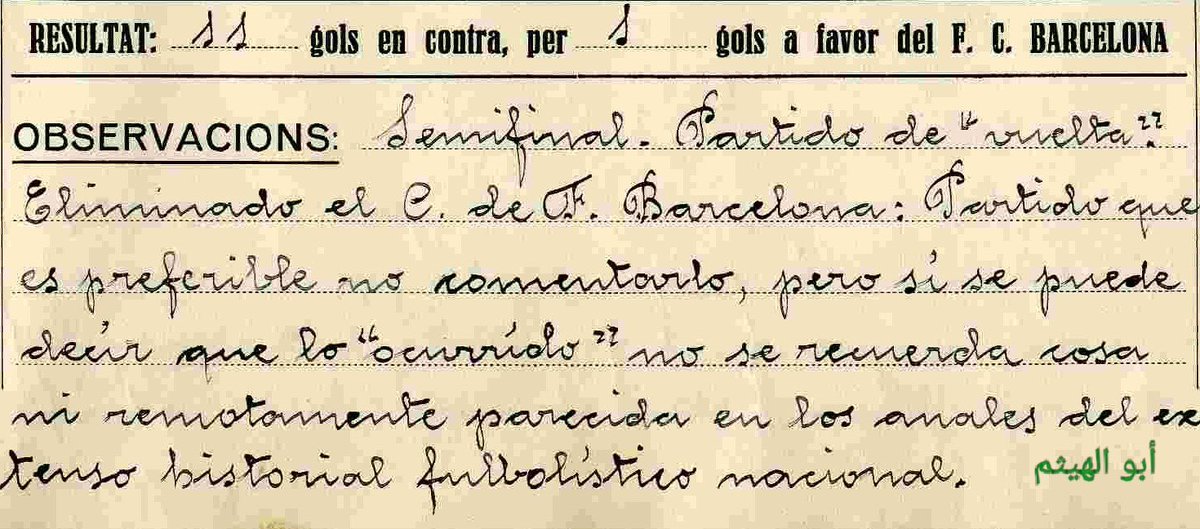 RESULTAT: 11 gols en contra, per 1 gols a favor del F. C. BARCELONA
OBSERVACIONS: Semifinal. Partido de "vuelta".
Eliminado el C. de F. Barcelona: Partido que
es preferible no comentarlo, pero sí se puede
decir que lo "ocurrido" no se recuerda cosa
ni remotamente parecida en los anales del ex
tenso historial fulbolístico nacional.
أبو الهيثم